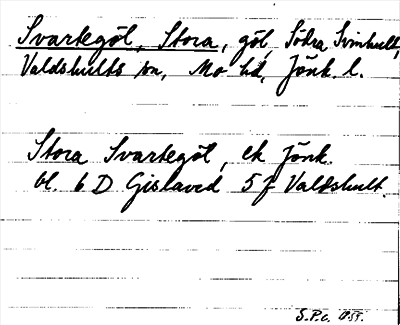 Svartegöl, Stora, göl, Södra Svinhult,
Valdshults sn, Mo hd, Jönk. l.
Stora Svartegöl, ek Jönk.
bl. 6 D Gislaved 5 f Valdshult.
S.P.C. 1959.